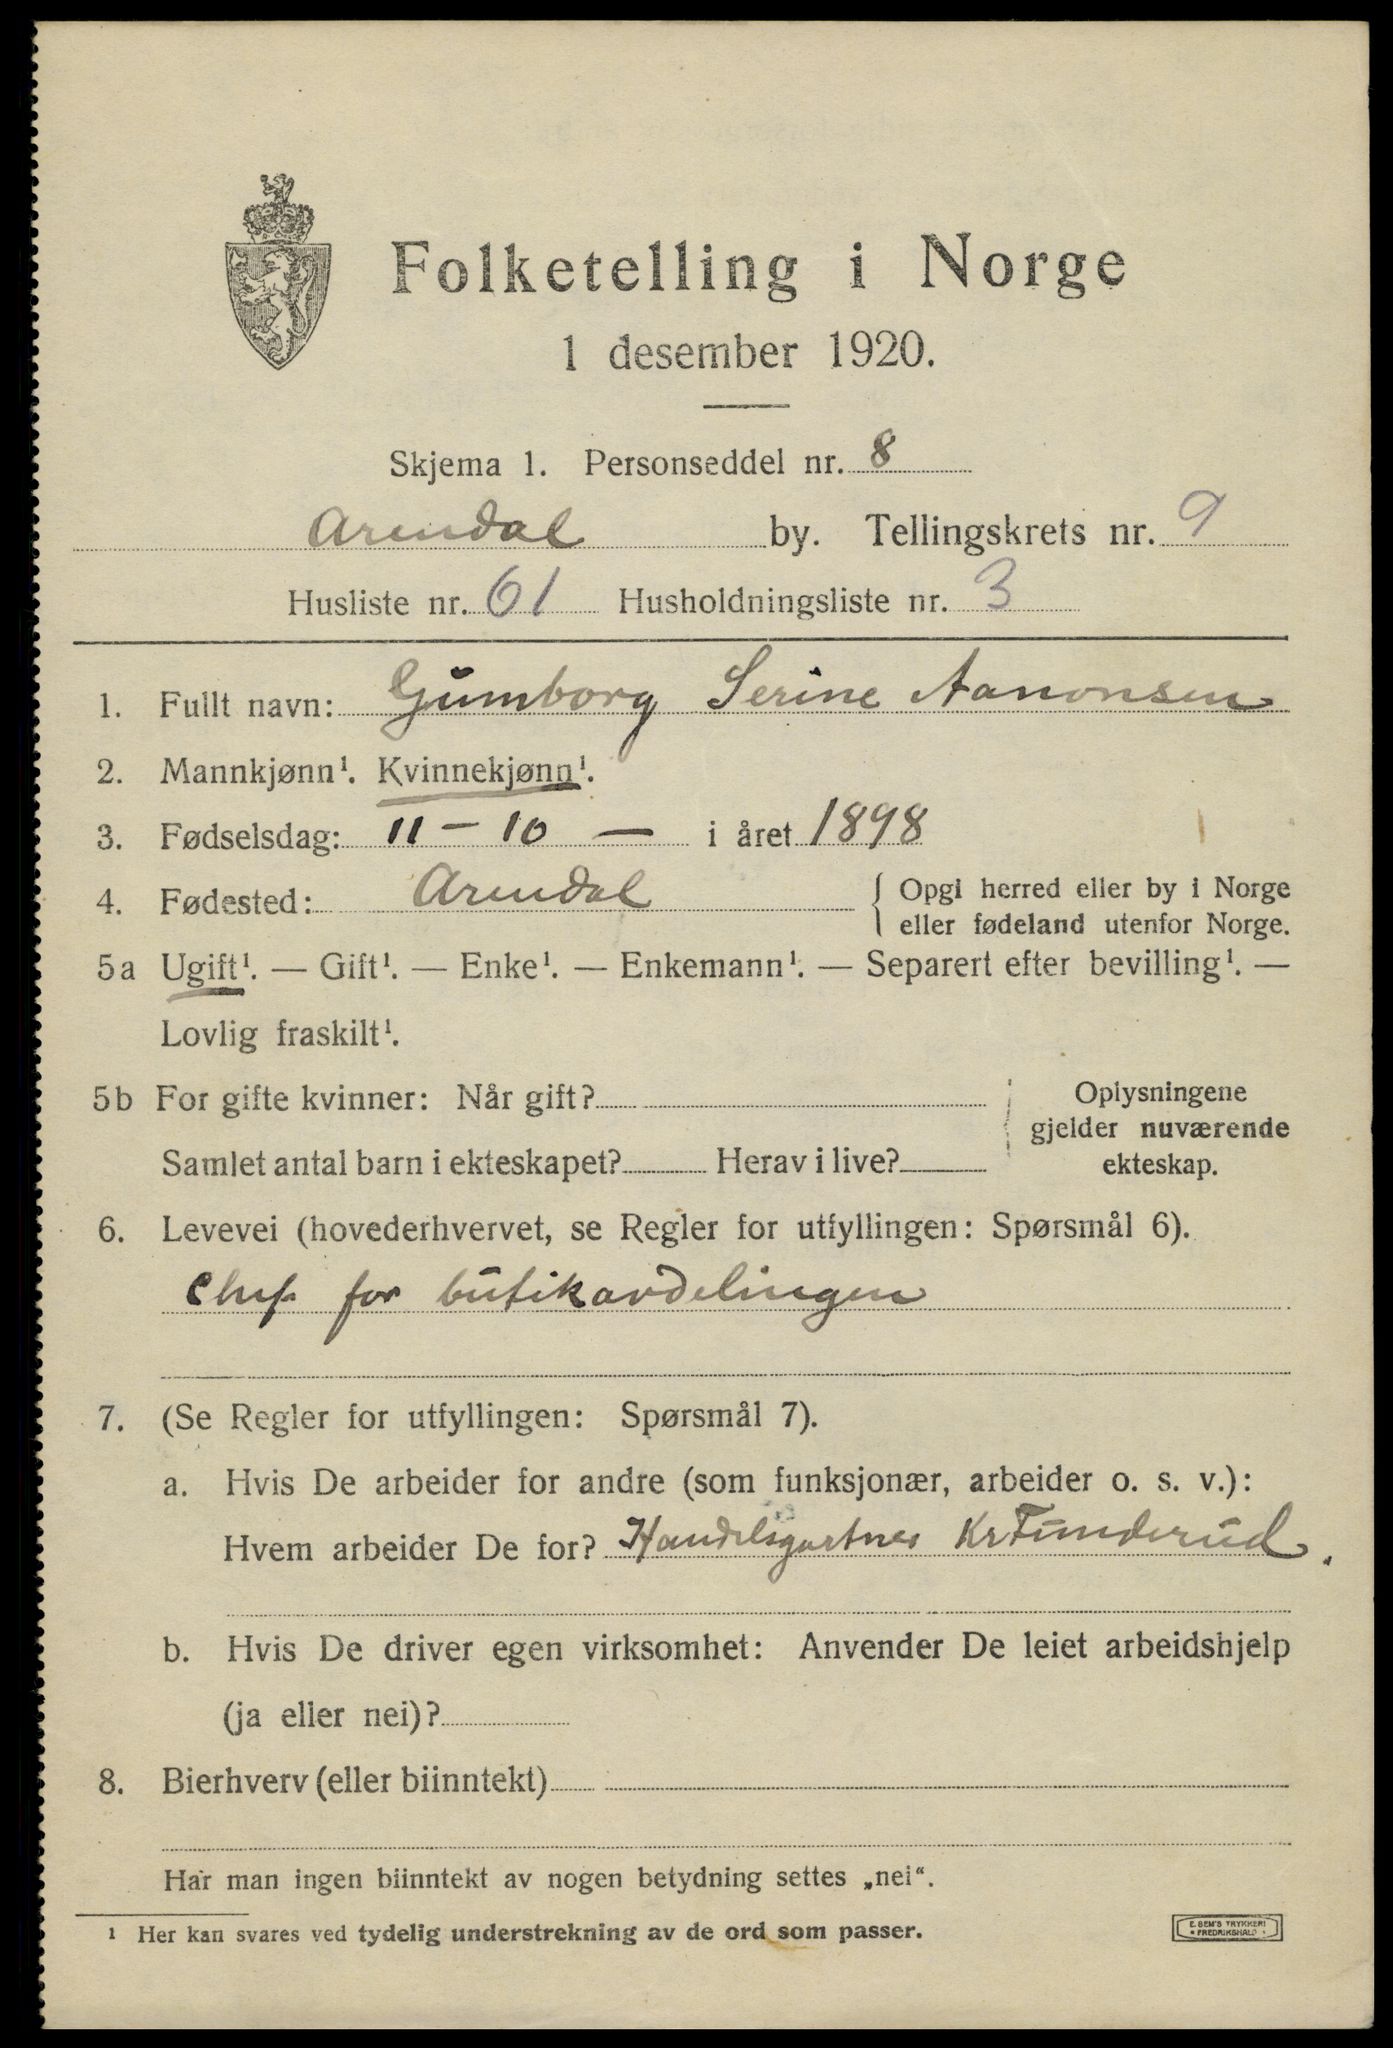 Folketelling i Norge
1 desember 1920.
Skjema 1. Personseddel nr. 8
Arendal by. Tellingskrets nr. 9
Husliste nr. 61 Husholdningsliste nr. 3
1. Fullt navn: Gumborg Serine Aanonsen
2. Mannkjønn¹. Kvinnekjønn¹.
3. Fødselsdag: 11 – 10 — i året 1898
4. Fødested: Arendal { Opgi herred eller by i Norge
eller fødeland utenfor Norge.
5a Ugift¹. — Gift¹. — Enke¹. — Enkemann¹. — Separert efter bevilling¹. —
Lovlig fraskilt¹.
5b For gifte kvinner: Når gift?
Samlet antal barn i ekteskapet? Herav i live?
Oplysningene
gjelder nuværende
ekteskap.
6. Levevei (hovederhvervet, se Regler for utfyllingen: Spørsmål 6).
Chef for butikavdelingen
7. (Se Regler for utfyllingen: Spørsmål 7).
a. Hvis De arbeider for andre (som funksjonær, arbeider o. s. v.):
Hvem arbeider De for? Handelsgartner Kr Funderud.
b. Hvis De driver egen virksomhet: Anvender De leiet arbeidshjelp
(ja eller nei)?
8. Bierhverv (eller biinntekt)
Har man ingen biinntekt av nogen betydning settes „nei“.
¹ Her kan svares ved tydelig understrekning av de ord som passer.
E. SEM'S TRYKKERI
FREDRIKSHALD